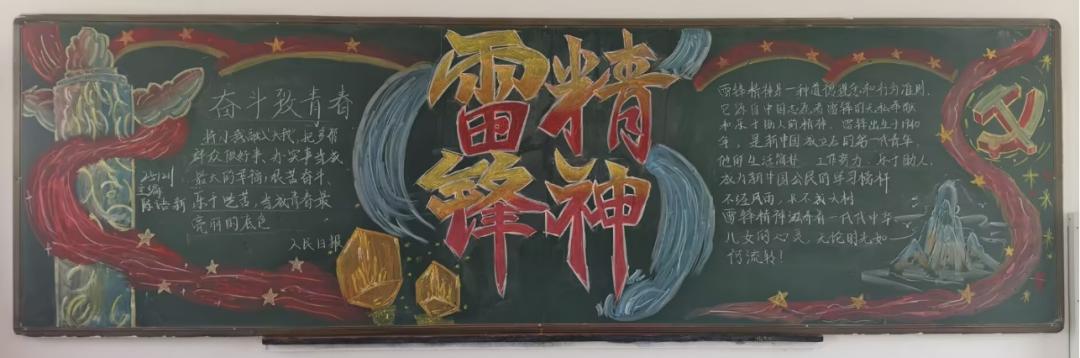 奋斗致青春
将小我融入大我，把多帮
群众做好事、办实事当成
最大的幸福，艰苦奋斗，
乐于吃苦，当成青春最
亮丽的底色
人民日报
主编
雷锋
精神
雷锋精神是一种道德理念和行为准则，
它源自中国志愿者雷锋的无私奉献
和乐于助人的精神。雷锋出生于1940
年，是新中国成立后的第一代青年，
他的生活简朴、工作努力、乐于助人，
成为新中国公民的学习榜样
不经风雨，长不成大树
雷锋精神滋养着一代代中华
儿女的心灵，无论时光如
何流转！